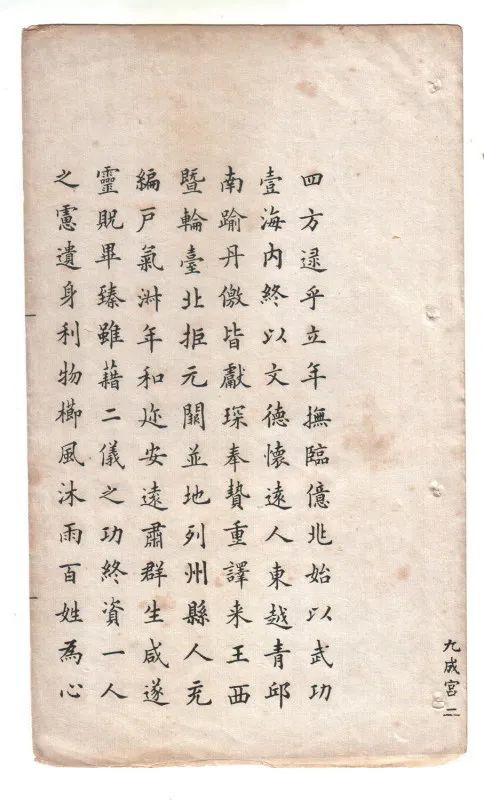 九成宮二
四方逮乎立年撫臨億兆始以武功
壹海内終以文德懷遠人東越青邱
南踰丹徼皆獻琛奉贄重譯来王西
暨輪臺北拒元闕並地列州縣人充
編戸氣淑年和迩安遠肅群生咸遂
靈貺畢臻雖藉二儀之功終資一人
之慮遺身利物櫛風沐雨百姓為心